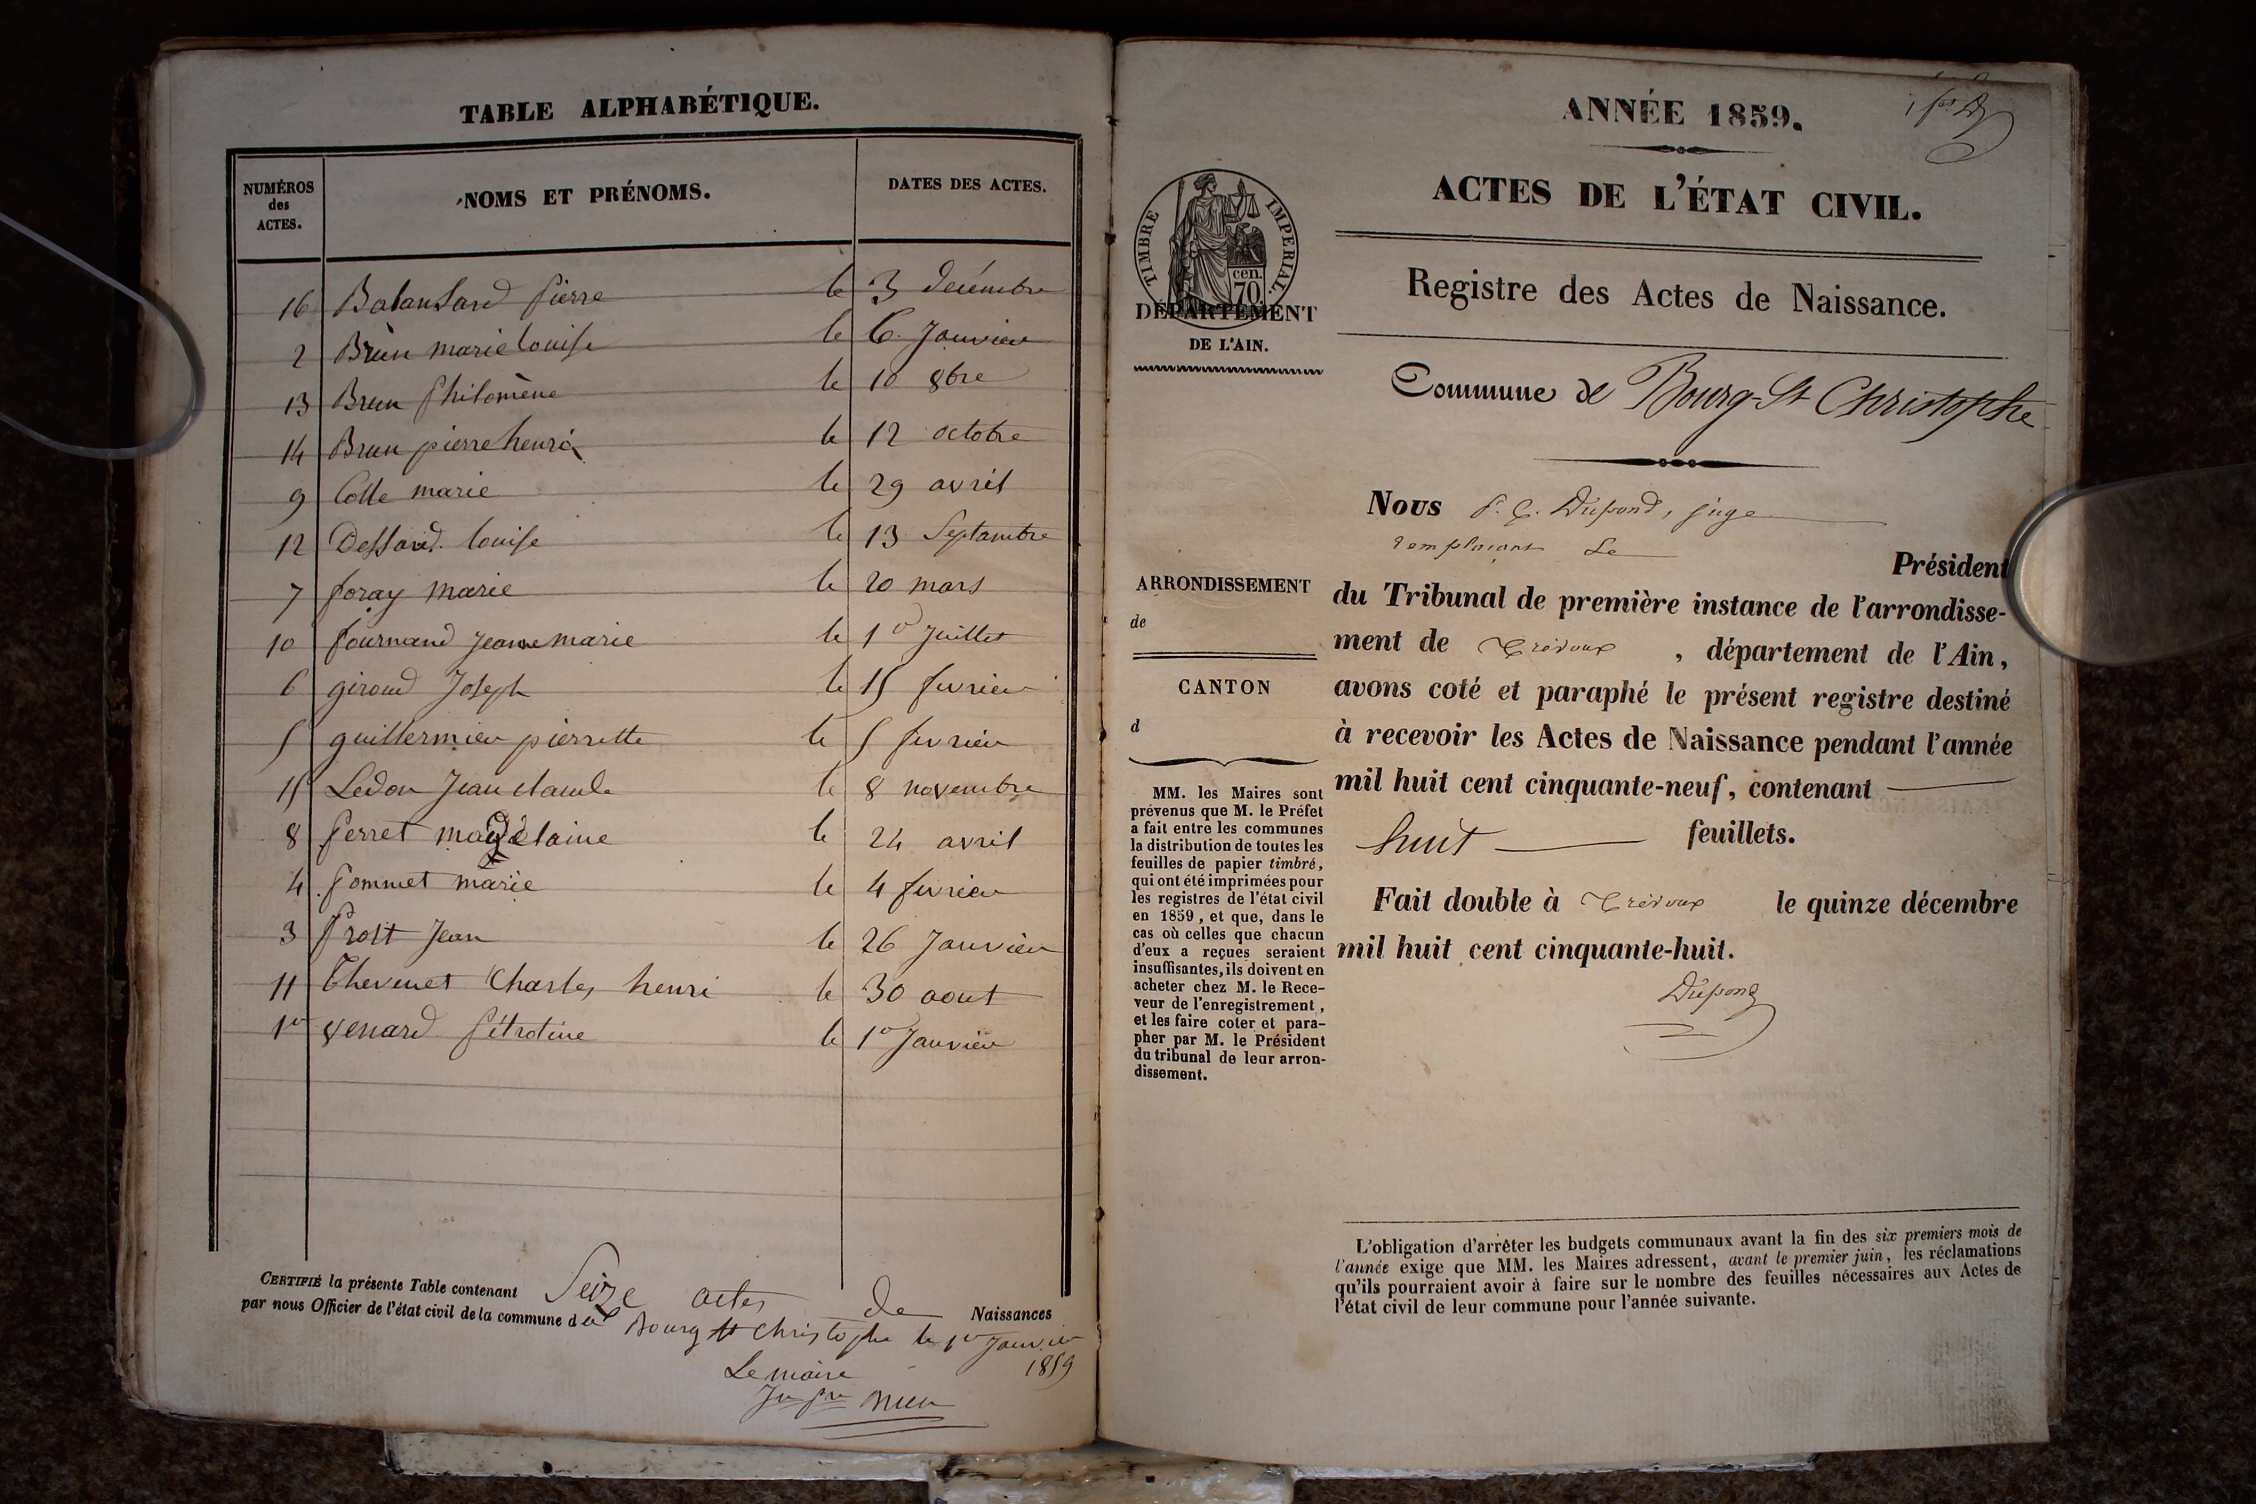 TABLE ALPHABÉTIQUE.
NUMÉROS des ACTES. NOMS ET PRÉNOMS. DATES DES ACTES.
16 Balansard pierre le 3 décembre
2 Brun marie louise le 6 Janvier
13 Brun philomène le 10 8bre
14 Brun pierre henri le 12 octobre
9 Colle marie le 29 avril
12 Dessard louise le 13 Septambre
7 foray marie le 20 mars
10 fournand jeanne marie le 1er Juillet
6 giroud Joseph le 15 fevrier
5 guillermier pierrette le 5 fevrier
15 Ledon Jean claude le 8 novembre
8 perret magdelaine le 24 avril
4 pommet marie le 4 fevrier
3 prost Jean le 26 Janvier
11 Thevenet Charles henri le 30 aout
1er venard pétrotine le 1er Janvier
CERTIFIÉ la présente Table contenant Seize actes de Naissances
par nous Officier de l'état civil de la commune de Bourg St Christophe le 1er Janvier
1859
Le maire
ANNÉE 1859.
ACTES DE L'ÉTAT CIVIL.
Registre des Actes de Naissance.
TIMBRE IMPERIAL.
cen. 70
DÉPARTEMENT
DE L'AIN.
Commune de Bourg-St Christophe
Nous Dupond, juge
remplaçant Le Président
du Tribunal de première instance de l'arrondisse-
ment de Trévoux, département de l'Ain,
avons coté et paraphé le présent registre destiné
à recevoir les Actes de Naissance pendant l'année
mil huit cent cinquante-neuf, contenant
huit feuillets.
Fait double à Trévoux le quinze décembre
mil huit cent cinquante-huit.
Dupond
ARRONDISSEMENT
de
CANTON
d
MM. les Maires sont
prévenus que M. le Préfet
a fait entre les communes
la distribution de toutes les
feuilles de papier timbré,
qui ont été imprimées pour
les registres de l'état civil
en 1859, et que, dans le
cas où celles que chacun
d'eux a reçues seraient
insuffisantes, ils doivent en
acheter chez M. le Rece-
veur de l'enregistrement,
et les faire coter et para-
pher par M. le Président
du tribunal de leur arron-
dissement.
L'obligation d'arrêter les budgets communaux avant la fin des six premiers mois de
l'année exige que MM. les Maires adressent, avant le premier juin, les réclamations
qu'ils pourraient avoir à faire sur le nombre des feuilles nécessaires aux Actes de
l'état civil de leur commune pour l'année suivante.